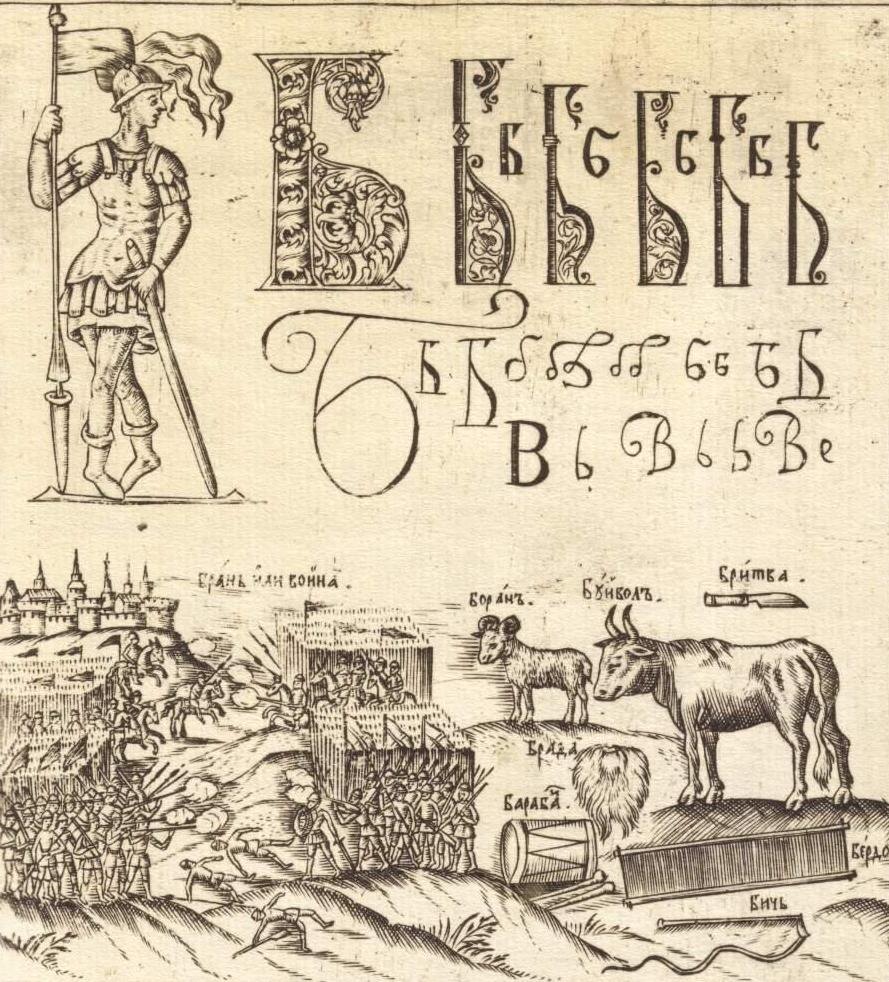 Б Б Б Б Б Б Б Б Б Б
Б Б Б б Б Б
B b B b B e
Бра́нь и҆лѝ война̀.
Бора́нъ.
Бу́йволъ.
Бри́тва.
Брада
Барабаⷩ҇.
Бе́рдо
Бичь